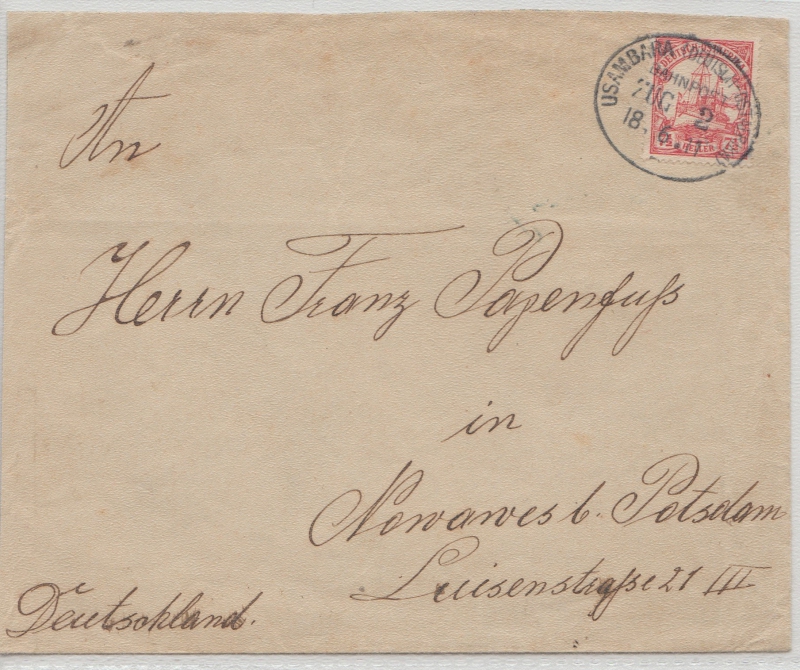 USAMBARA DEUTSCH-OSTAFRIKA
BAHNPOST
ZUG 2
18. 6.
DEUTSCH-OSTAFRIKA
7½ HELLER 7½
An
Herrn Franz Papenfuß
in
Nowawes b. Potsdam
Luisenstraße 21 III
Deutschland.